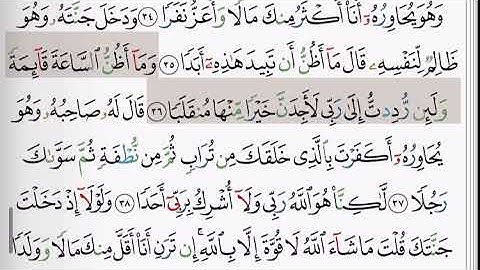 وَهُوَ يُحَاوِرُهُۥٓ أَنَا۠ أَكْثَرُ مِنكَ مَالًا وَأَعَزُّ نَفَرًا ٣٤ وَدَخَلَ جَنَّتَهُۥ وَهُوَ
ظَالِمٌ لِّنَفْسِهِۦ قَالَ مَآ أَظُنُّ أَن تَبِيدَ هَٰذِهِۦٓ أَبَدًا ٣٥ وَمَآ أَظُنُّ ٱلسَّاعَةَ قَآئِمَةً
وَلَئِن رُّدِدتُّ إِلَىٰ رَبِّى لَأَجِدَنَّ خَيْرًا مِّنْهَا مُنقَلَبًا ٣٦ قَالَ لَهُۥ صَاحِبُهُۥ وَهُوَ
يُحَاوِرُهُۥٓ أَكَفَرْتَ بِٱلَّذِى خَلَقَكَ مِن تُرَابٍ ثُمَّ مِن نُّطْفَةٍ ثُمَّ سَوَّىٰكَ
رَجُلًا ٣٧ لَّٰكِنَّا۠ هُوَ ٱللَّهُ رَبِّى وَلَآ أُشْرِكُ بِرَبِّىٓ أَحَدًا ٣٨ وَلَوْلَآ إِذْ دَخَلْتَ
جَنَّتَكَ قُلْتَ مَا شَآءَ ٱللَّهُ لَا قُوَّةَ إِلَّا بِٱللَّهِ ۚ إِن تَرَنِ أَنَا۠ أَقَلَّ مِنكَ مَالًا وَوَلَدًا